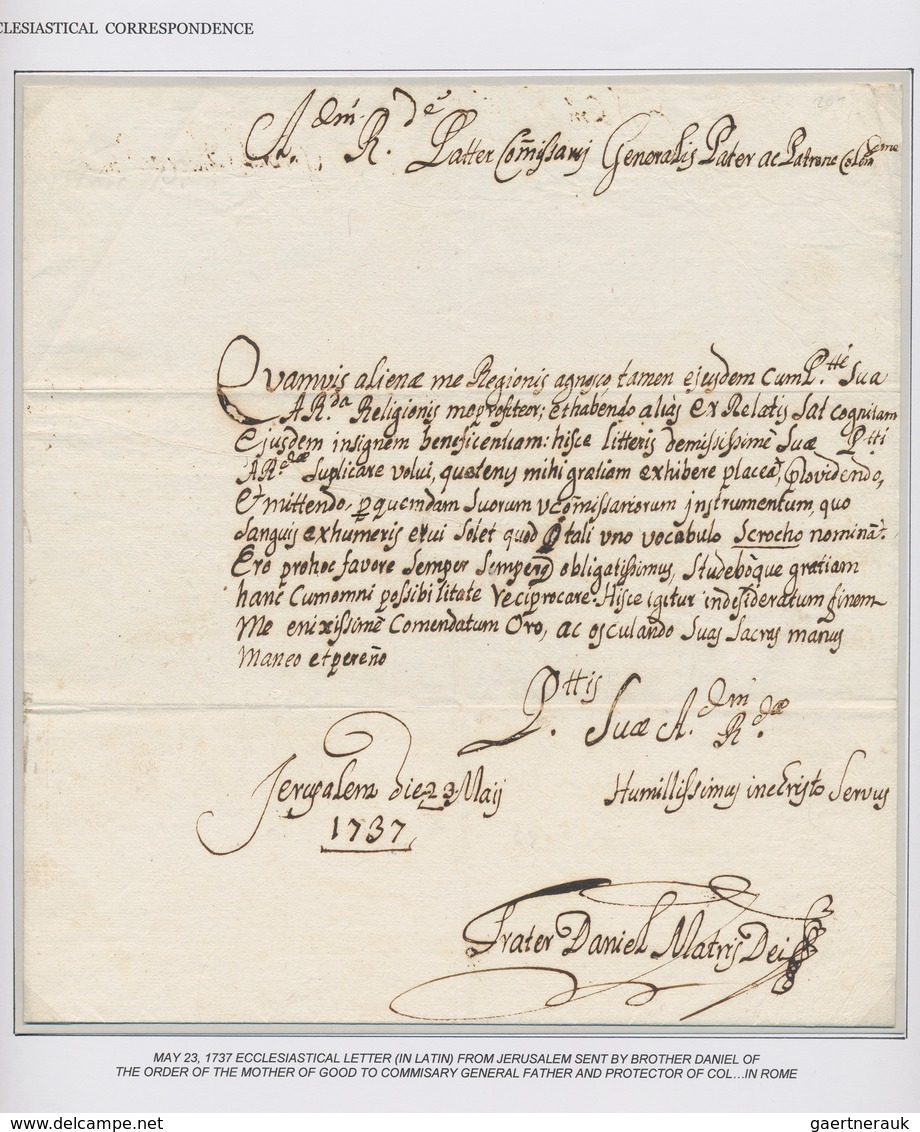 CLESIASTICAL CORRESPONDENCE
A.dm R.de Patter Com̃issarij Generalis Pater ac Patrone Colendme
Quamvis alienæ me Regionis agnosco tamen ejusdem cum P.tte Sua
A R.da Religionis me profiteor; et habendo aliàs ex Relatis Sat cognitam
Ejusdem insignem beneficentiam: hisce litteris demississimè Suæ P.tti
A R.dæ Suplicare volui, quatenus mihi gratiam exhibere placeat, Providendo,
Et mittendo, per quemdam Suorum V. Com̃issariorum instrumentum, quo
Sanguis ex humeris erui Solet quod Itali uno vocabulo Scrocho nominãt.
Ero pro hoc favore Semper Semperq obligatissimus, Studeboque gratiam
hanc Cum omni possibilitate reciprocare. Hisce igitur in desideratum finem
Me enixissimè Comendatum Oro, ac osculando Suas Sacras manus
Maneo et pereñno
P.ttis Suæ A.dm R.dæ
Jerusalem die 23 Maij
1737
Humillissimus in Cristo Servus
Frater Daniel Matris Dei
MAY 23, 1737 ECCLESIASTICAL LETTER (IN LATIN) FROM JERUSALEM SENT BY BROTHER DANIEL OF
THE ORDER OF THE MOTHER OF GOOD TO COMMISARY GENERAL FATHER AND PROTECTOR OF COL...IN ROME
www.delcampe.net
gaertnerauk